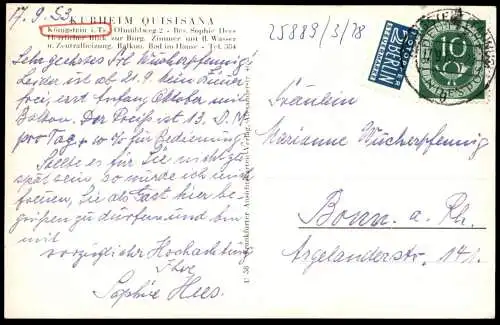 17.9.53
KURHEIM QUISISANA
Königstein i. Ts. Ölmühlweg 2 - Bes. Sophie Hees
Herrlicher Blick zur Burg. Zimmer mit fl. Wasser
u. Zentralheizung. Balkon. Bad im Hause - Tel. 354
Sehr geehrtes Frl Wücherpfennig!
Leider ist ab 21.9. kein Zimmer
frei, erst Anfang Oktober mit
Balkon. Der Preiß ist 13. D.M
pro Tag + 10% für Bedienung.
Sollte es für Sie nicht zu
spät sein, so würde ich mich
freuen, Sie als Gast hier be-
grüßen zu dürfen und bin
mit
vorzüglicher Hochachtung
Ihre
Sophie Hees.
U 56 Frankfurter Ansichtskarten-Verlag
25889/3/78
NOTOPFER
2 BERLIN
STEUERMARKE
10
DEUTSCHE BUNDESPOST
Fräulein
Marianne Wücherpfennig
Bonn a. Rh.
Argelanderstr. 51.